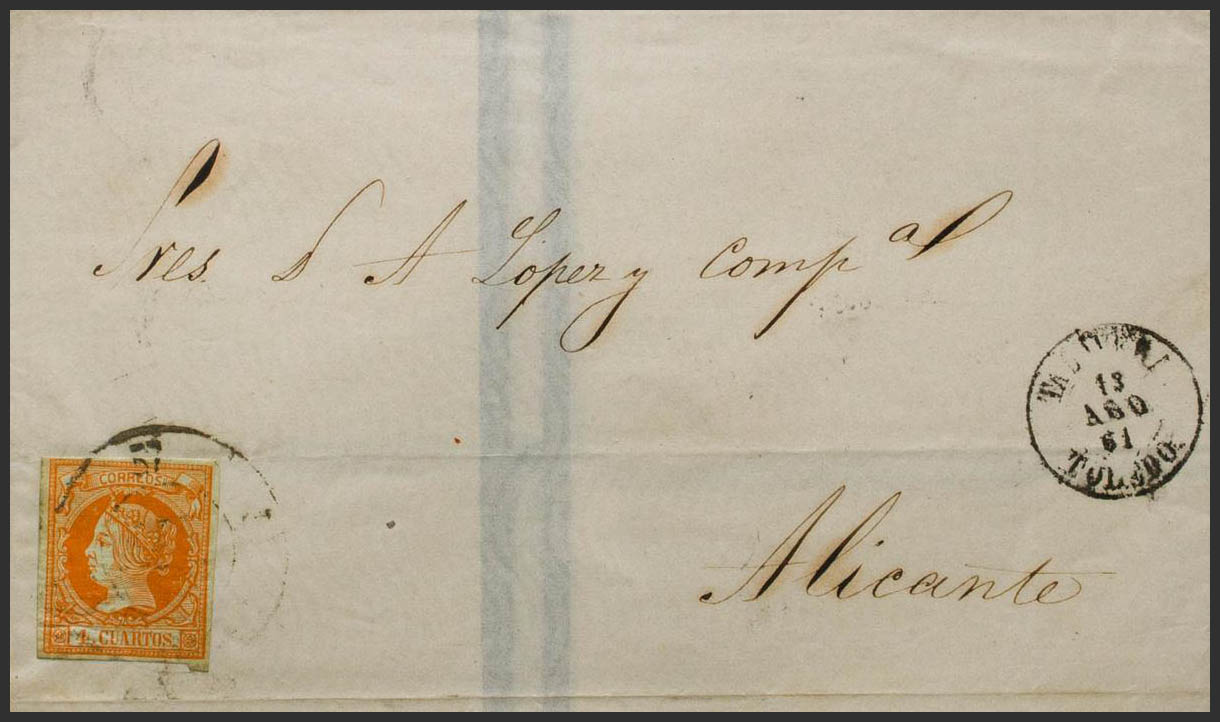 Sres. D A Lopez y Comp.a
Alicante
13
AGO
61
TOLEDO.
CORREOS
4 CUARTOS.